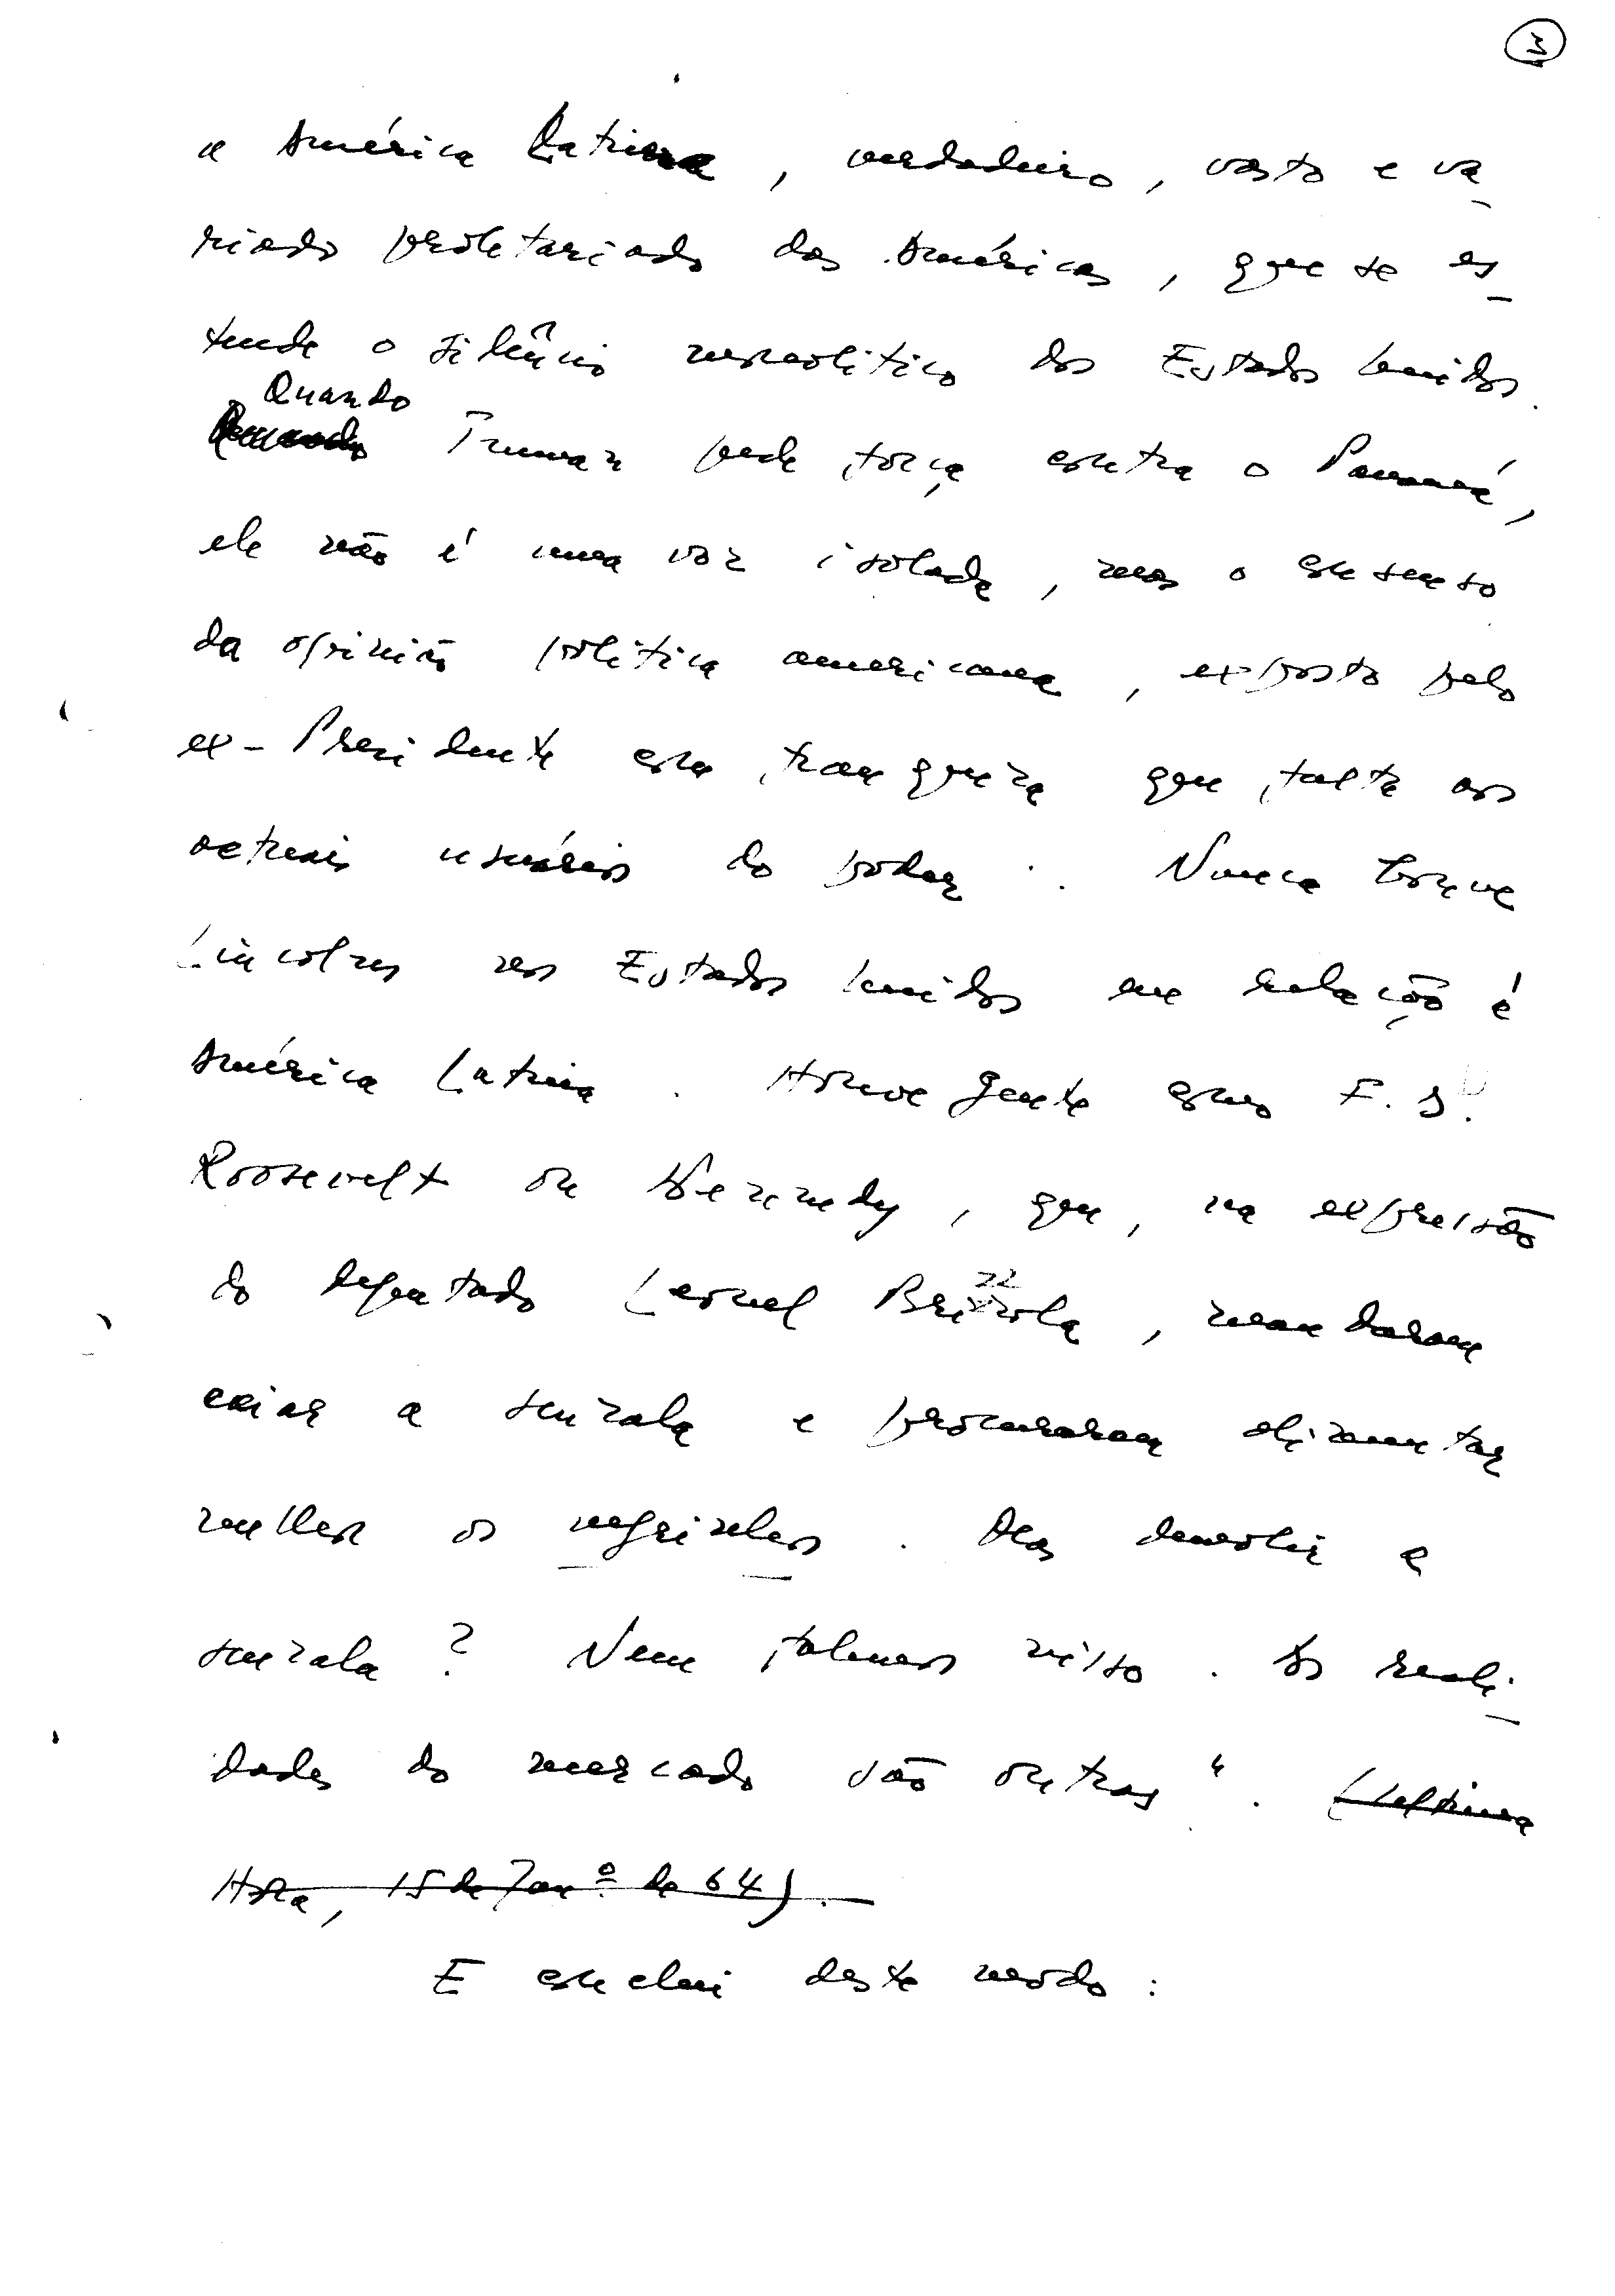 3
a América Latina, verdadeiro, vasto e va-
riado proletariado das Américas, que se es-
tende o silêncio monolítico dos Estados Unidos.
Quando
Quando Truman pede força contra o Panamá,
ele não é uma voz isolada, mas o consenso
da opinião política americana, exposto pelo
ex-Presidente com franqueza que falta aos
actuais usuários do poder. Nunca houve
Lincolns nos Estados Unidos em relação à
América Latina. Houve gente como F. D.
Roosevelt ou Kennedy, que, na expressão
do deputado Leonel Brizzola, mandaram
caiar a senzala e procuraram alimentar
melhor os negrinhos. Mas demolir a
senzala? Nem falemos nisso. As reali-
dades do mercado são outras". (Última
Hora, 15 de Janº de 64).
E conclui deste modo: